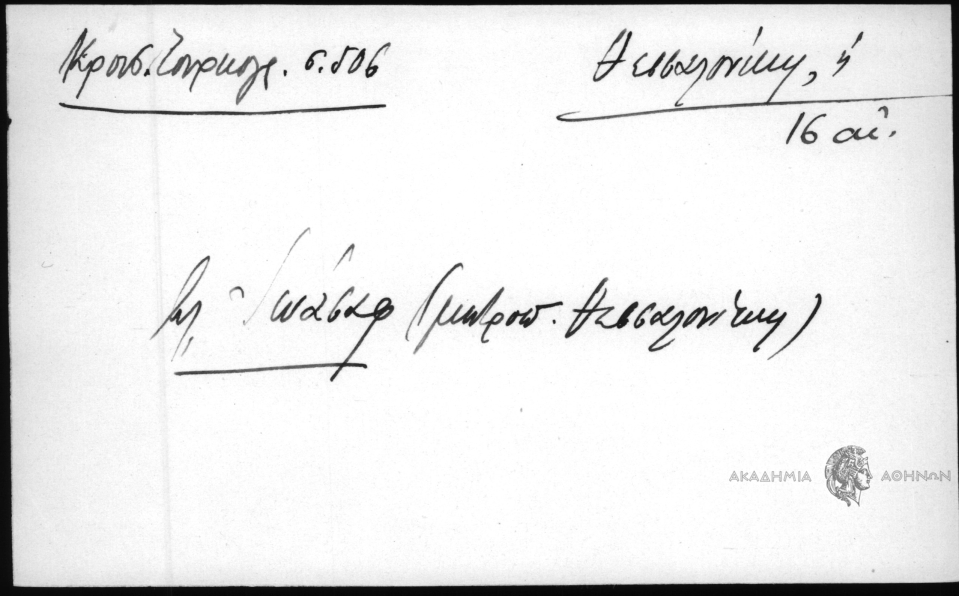 Κρουσ. Τουρκογρ. σ. 506
Θεσσαλονίκη, ἡ
16 αἰ.
βλ. Ἰωάσαφ (μητροπ. Θεσσαλονίκης)
ΑΚΑΔΗΜΙΑ ΑΘΗΝΩΝ